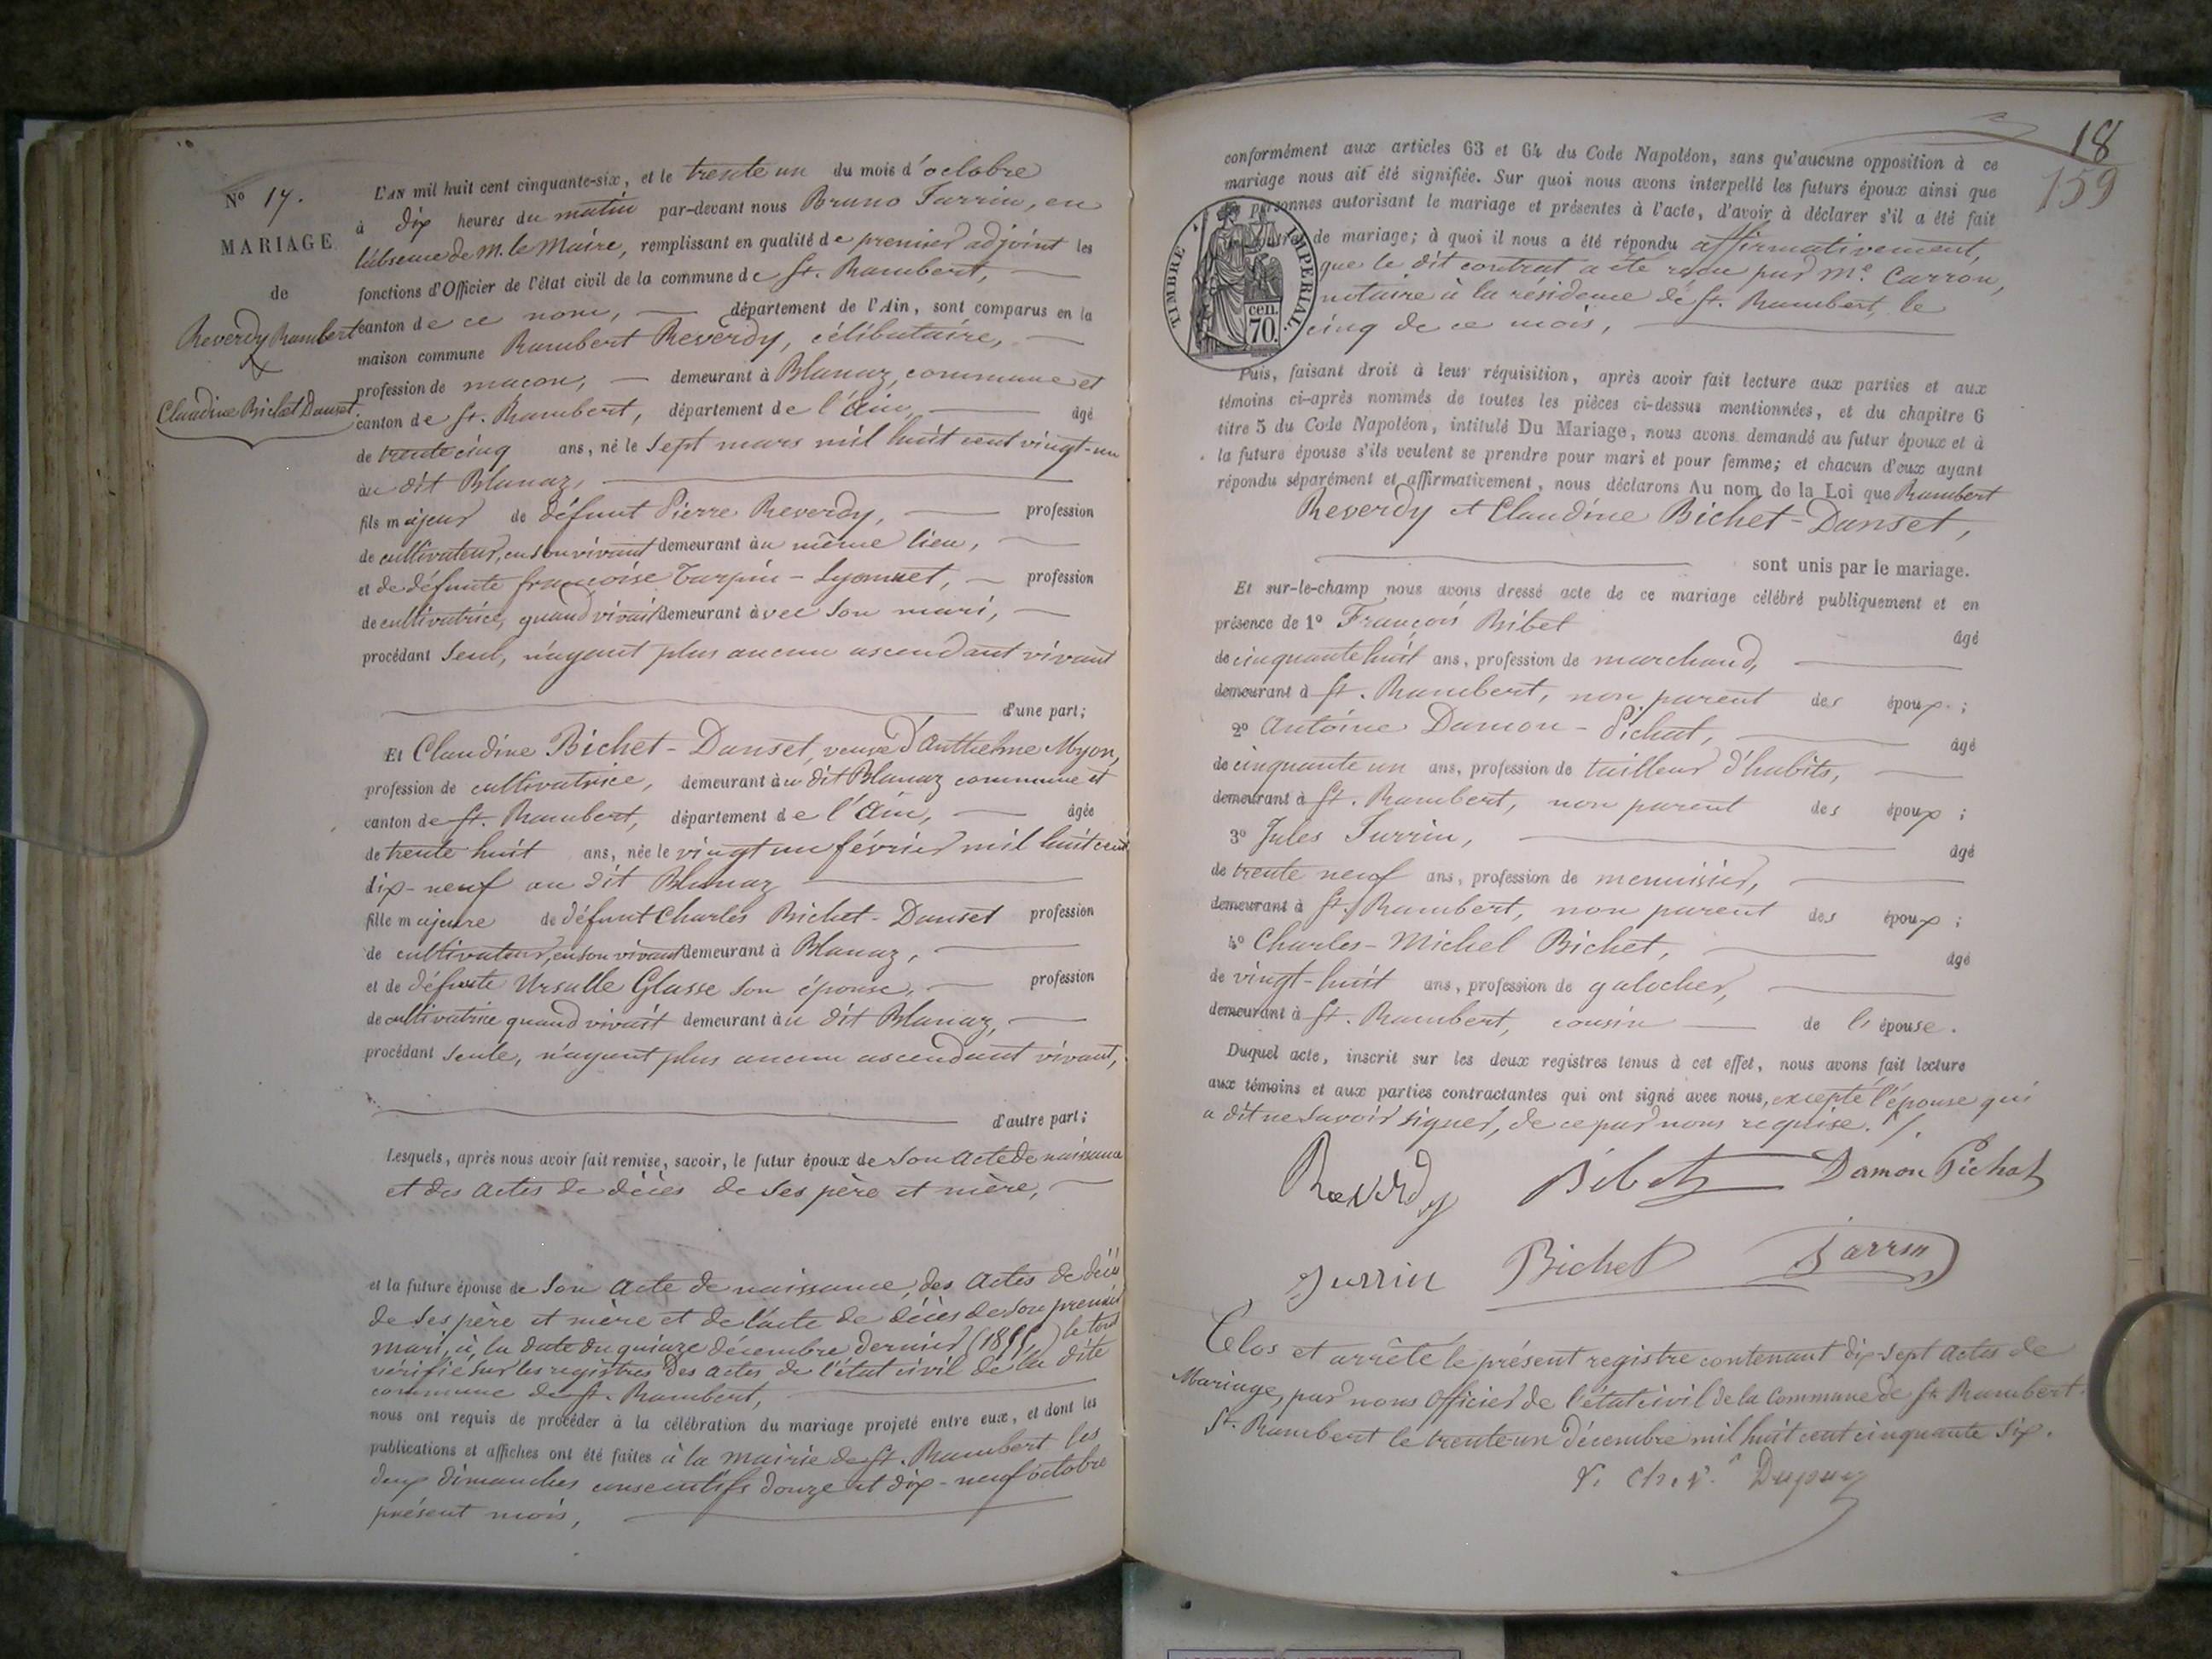 No 17.
MARIAGE
de
Reverdy Rambert
&
Claudine Bichet Danset.
L'AN mil huit cent cinquante-six, et le trente un du mois d'octobre
à dix heures du matin par-devant nous Bruno Jarrin, en
l'absence de M. le Maire, remplissant en qualité de premier adjoint les
fonctions d'Officier de l'état civil de la commune de St. Rambert,
canton de ce nom, département de l'Ain, sont comparus en la
maison commune Rambert Reverdy, célibataire,
profession de maçon, demeurant à Blanaz, commune et
canton de St. Rambert, département de l'Ain, âgé
de trente cinq ans, né le sept mars mil huit cent vingt-un
au dit Blanaz,
fils majeur de défunt Pierre Reverdy, profession
de cultivateur, en son vivant demeurant au même lieu,
et de défunte françoise Turpin-Lyonnet, profession
de cultivatrice, quand vivait demeurant avec son mari,
procédant seul, n'ayant plus aucun ascendant vivant
d'une part;
Et Claudine Bichet-Danset, veuve d'Anthelme Myon,
profession de cultivatrice, demeurant au dit Blanaz commune et
canton de St. Rambert, département de l'Ain, âgée
de trente huit ans, née le vingt un février mil huit cent
dix-neuf au dit Blanaz
fille majeure de défunt Charles Bichet-Danset profession
de cultivateur, en son vivant demeurant à Blanaz,
et de défunte Ursulle Glasse son épouse, profession
de cultivatrice quand vivait demeurant au dit Blanaz,
procédant seule, n'ayant plus aucun ascendant vivant,
d'autre part;
Lesquels, après nous avoir fait remise, savoir, le futur époux de son acte de naissance
et des actes de décès de ses père et mère,
et la future épouse de son acte de naissance, des actes de décès
de ses père et mère et de l'acte de décès de son premier
mari, à la date du quinze décembre dernier (1855) le tout
vérifié sur les registres des actes de l'état civil de la dite
commune de St. Rambert,
nous ont requis de procéder à la célébration du mariage projeté entre eux, et dont les
publications et affiches ont été faites à la mairie de St. Rambert les
deux dimanches consécutifs douze et dix-neuf octobre
présent mois,
18
159
conformément aux articles 63 et 64 du Code Napoléon, sans qu'aucune opposition à ce
mariage nous ait été signifiée. Sur quoi nous avons interpellé les futurs époux ainsi que
personnes autorisant le mariage et présentes à l'acte, d'avoir à déclarer s'il a été fait
de mariage; à quoi il nous a été répondu affirmativement,
que le dit contrat a été reçu par Me. Carron,
notaire à la résidence de St. Rambert, le
cinq de ce mois,
TIMBRE IMPERIAL.
70. cen.
Puis, faisant droit à leur réquisition, après avoir fait lecture aux parties et aux
témoins ci-après nommés de toutes les pièces ci-dessus mentionnées, et du chapitre 6
titre 5 du Code Napoléon, intitulé Du Mariage, nous avons demandé au futur époux et à
la future épouse s'ils veulent se prendre pour mari et pour femme; et chacun d'eux ayant
répondu séparément et affirmativement, nous déclarons Au nom de la Loi que Rambert
Reverdy et Claudine Bichet-Danset,
sont unis par le mariage.
Et sur-le-champ nous avons dressé acte de ce mariage célébré publiquement et en
présence de 1o François Bibet âgé
de cinquante huit ans, profession de marchand,
demeurant à St. Rambert, non parent des époux;
2o Antoine Damon-Pichat, âgé
de cinquante un ans, profession de tailleur d'habits,
demeurant à St. Rambert, non parent des époux;
3o Jules Jurrin, âgé
de trente neuf ans, profession de menuisier,
demeurant à St. Rambert, non parent des époux;
4o Charles-Michel Bichet, âgé
de vingt-huit ans, profession de galocher,
demeurant à St. Rambert, cousin de l'épouse.
Duquel acte, inscrit sur les deux registres tenus à cet effet, nous avons fait lecture
aux témoins et aux parties contractantes qui ont signé avec nous, excepté l'épouse qui
a dit ne savoir signer, de ce par nous requise.
Reverdy Bibet Damon Pichat
Jurrin Bichet Jarrin
Clos et arrêté le présent registre contenant dix-sept actes de
Mariage, par nous Officier de l'état civil de la Commune de St. Rambert.
St. Rambert le trente-un décembre mil huit cent cinquante six.
Dupuy